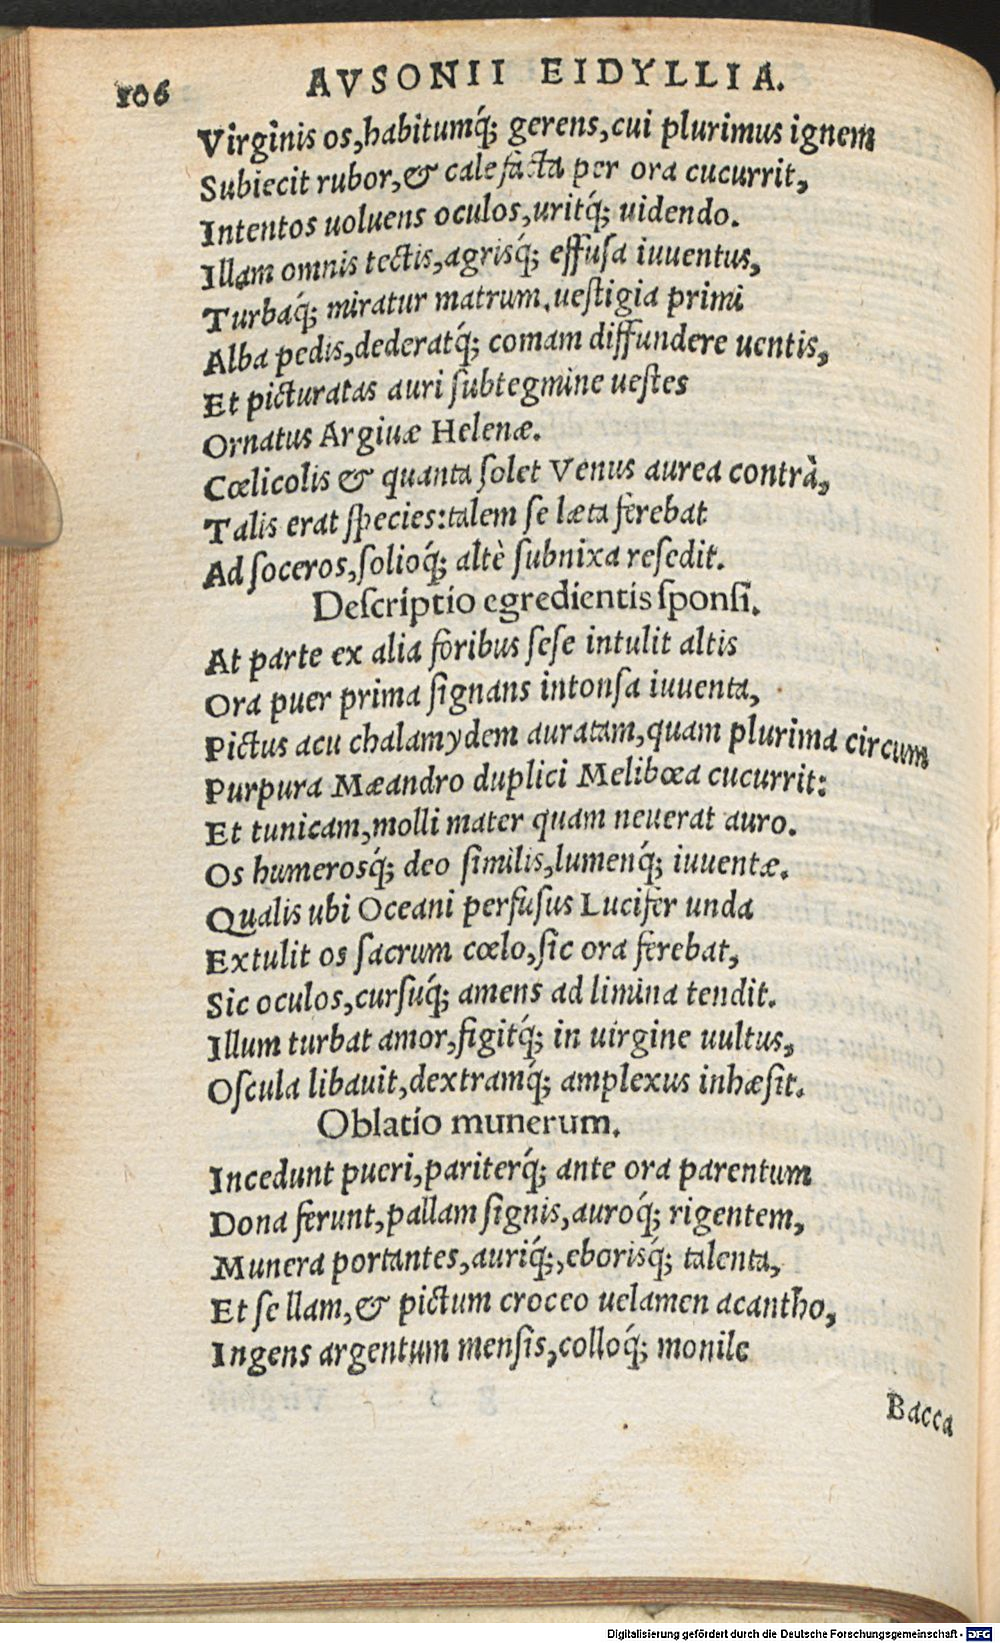 106 AVSONII EIDYLLIA.
Virginis os,habitumq́; gerens,cui plurimus ignem
Subiecit rubor,& calefacta per ora cucurrit,
Intentos uoluens oculos,uritq́; uidendo.
Illam omnis tectis,agrisq́; effuſa iuuentus,
Turbaq́; miratur matrum,ueſtigia primi
Alba pedis,dederatq́; comam diffundere uentis,
Et picturatas auri ſubtegmine ueſtes
Ornatus Argiuæ Helenæ.
Cœlicolis & quanta ſolet Venus aurea contrà,
Talis erat ſpecies:talem ſe læta ferebat
Ad ſoceros,ſolioq́; altè ſubnixa reſedit.
Deſcriptio egredientis ſponſi.
At parte ex alia foribus ſeſe intulit altis
Ora puer prima ſignans intonſa iuuenta,
Pictus acu chalamydem auratam,quam plurima circum
Purpura Mæandro duplici Melibœa cucurrit:
Et tunicam,molli mater quam neuerat auro.
Os humerosq́; deo ſimilis,lumenq́; iuuentæ.
Qualis ubi Oceani perfuſus Lucifer unda
Extulit os ſacrum cœlo,ſic ora ferebat,
Sic oculos,curſuq́; amens ad limina tendit.
Illum turbat amor,figitq́; in uirgine uultus,
Oſcula libauit,dextramq́; amplexus inhæſit.
Oblatio munerum.
Incedunt pueri,pariterq́; ante ora parentum
Dona ferunt,pallam ſignis,auroq́; rigentem,
Munera portantes,auriq́;,eborisq́; talenta,
Et ſellam,& pictum croceo uelamen acantho,
Ingens argentum menſis,colloq́; monile
Bacca
Digitalisierung gefördert durch die Deutsche Forschungsgemeinschaft - DFG